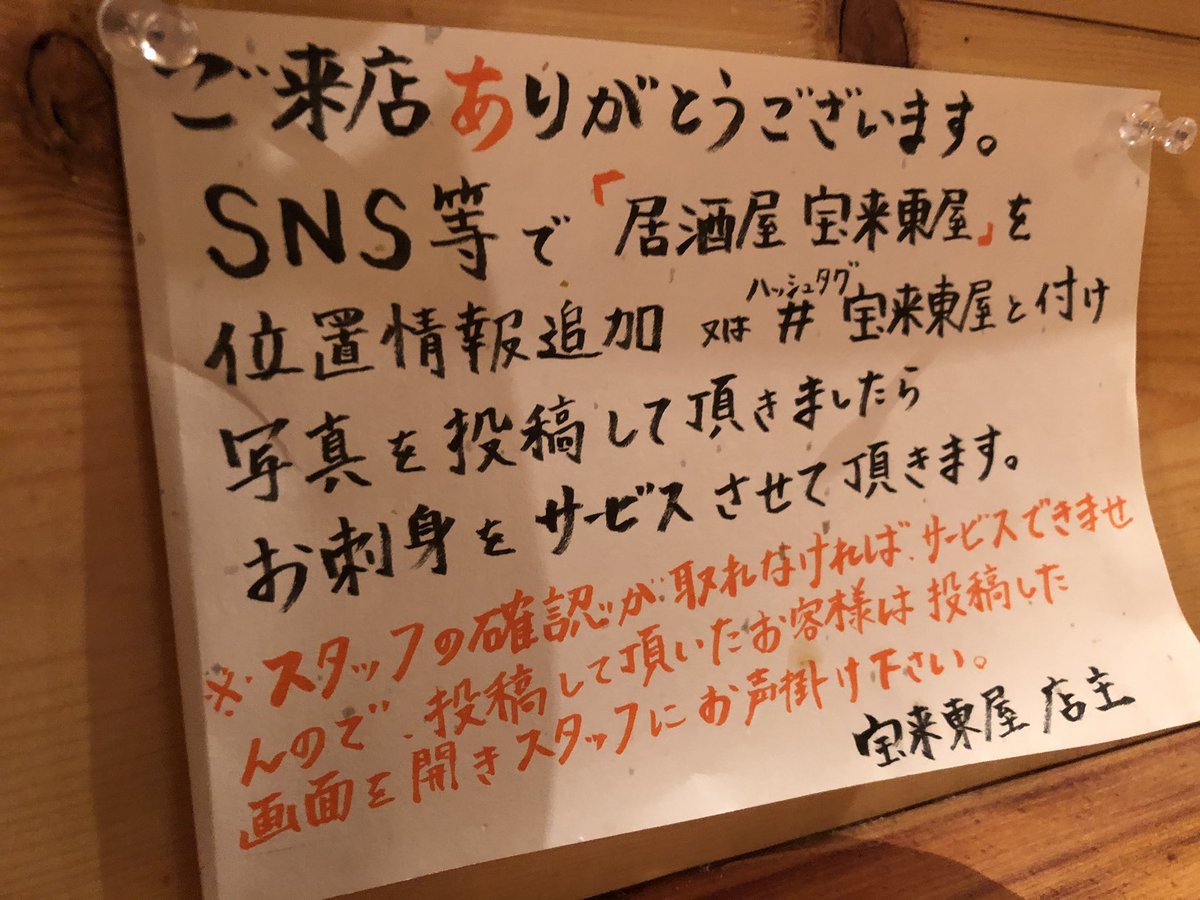 ご来店ありがとうございます。
SNS等で「居酒屋 宝来東屋」を
位置情報追加 又は #ハッシュタグ 宝来東屋と付け
写真を投稿して頂きましたら
お刺身をサービスさせて頂きます。
※スタッフの確認が取れなければ、サービスできませ
んので、投稿して頂いたお客様は投稿した
画面を開きスタッフにお声掛け下さい。
宝来東屋 店主